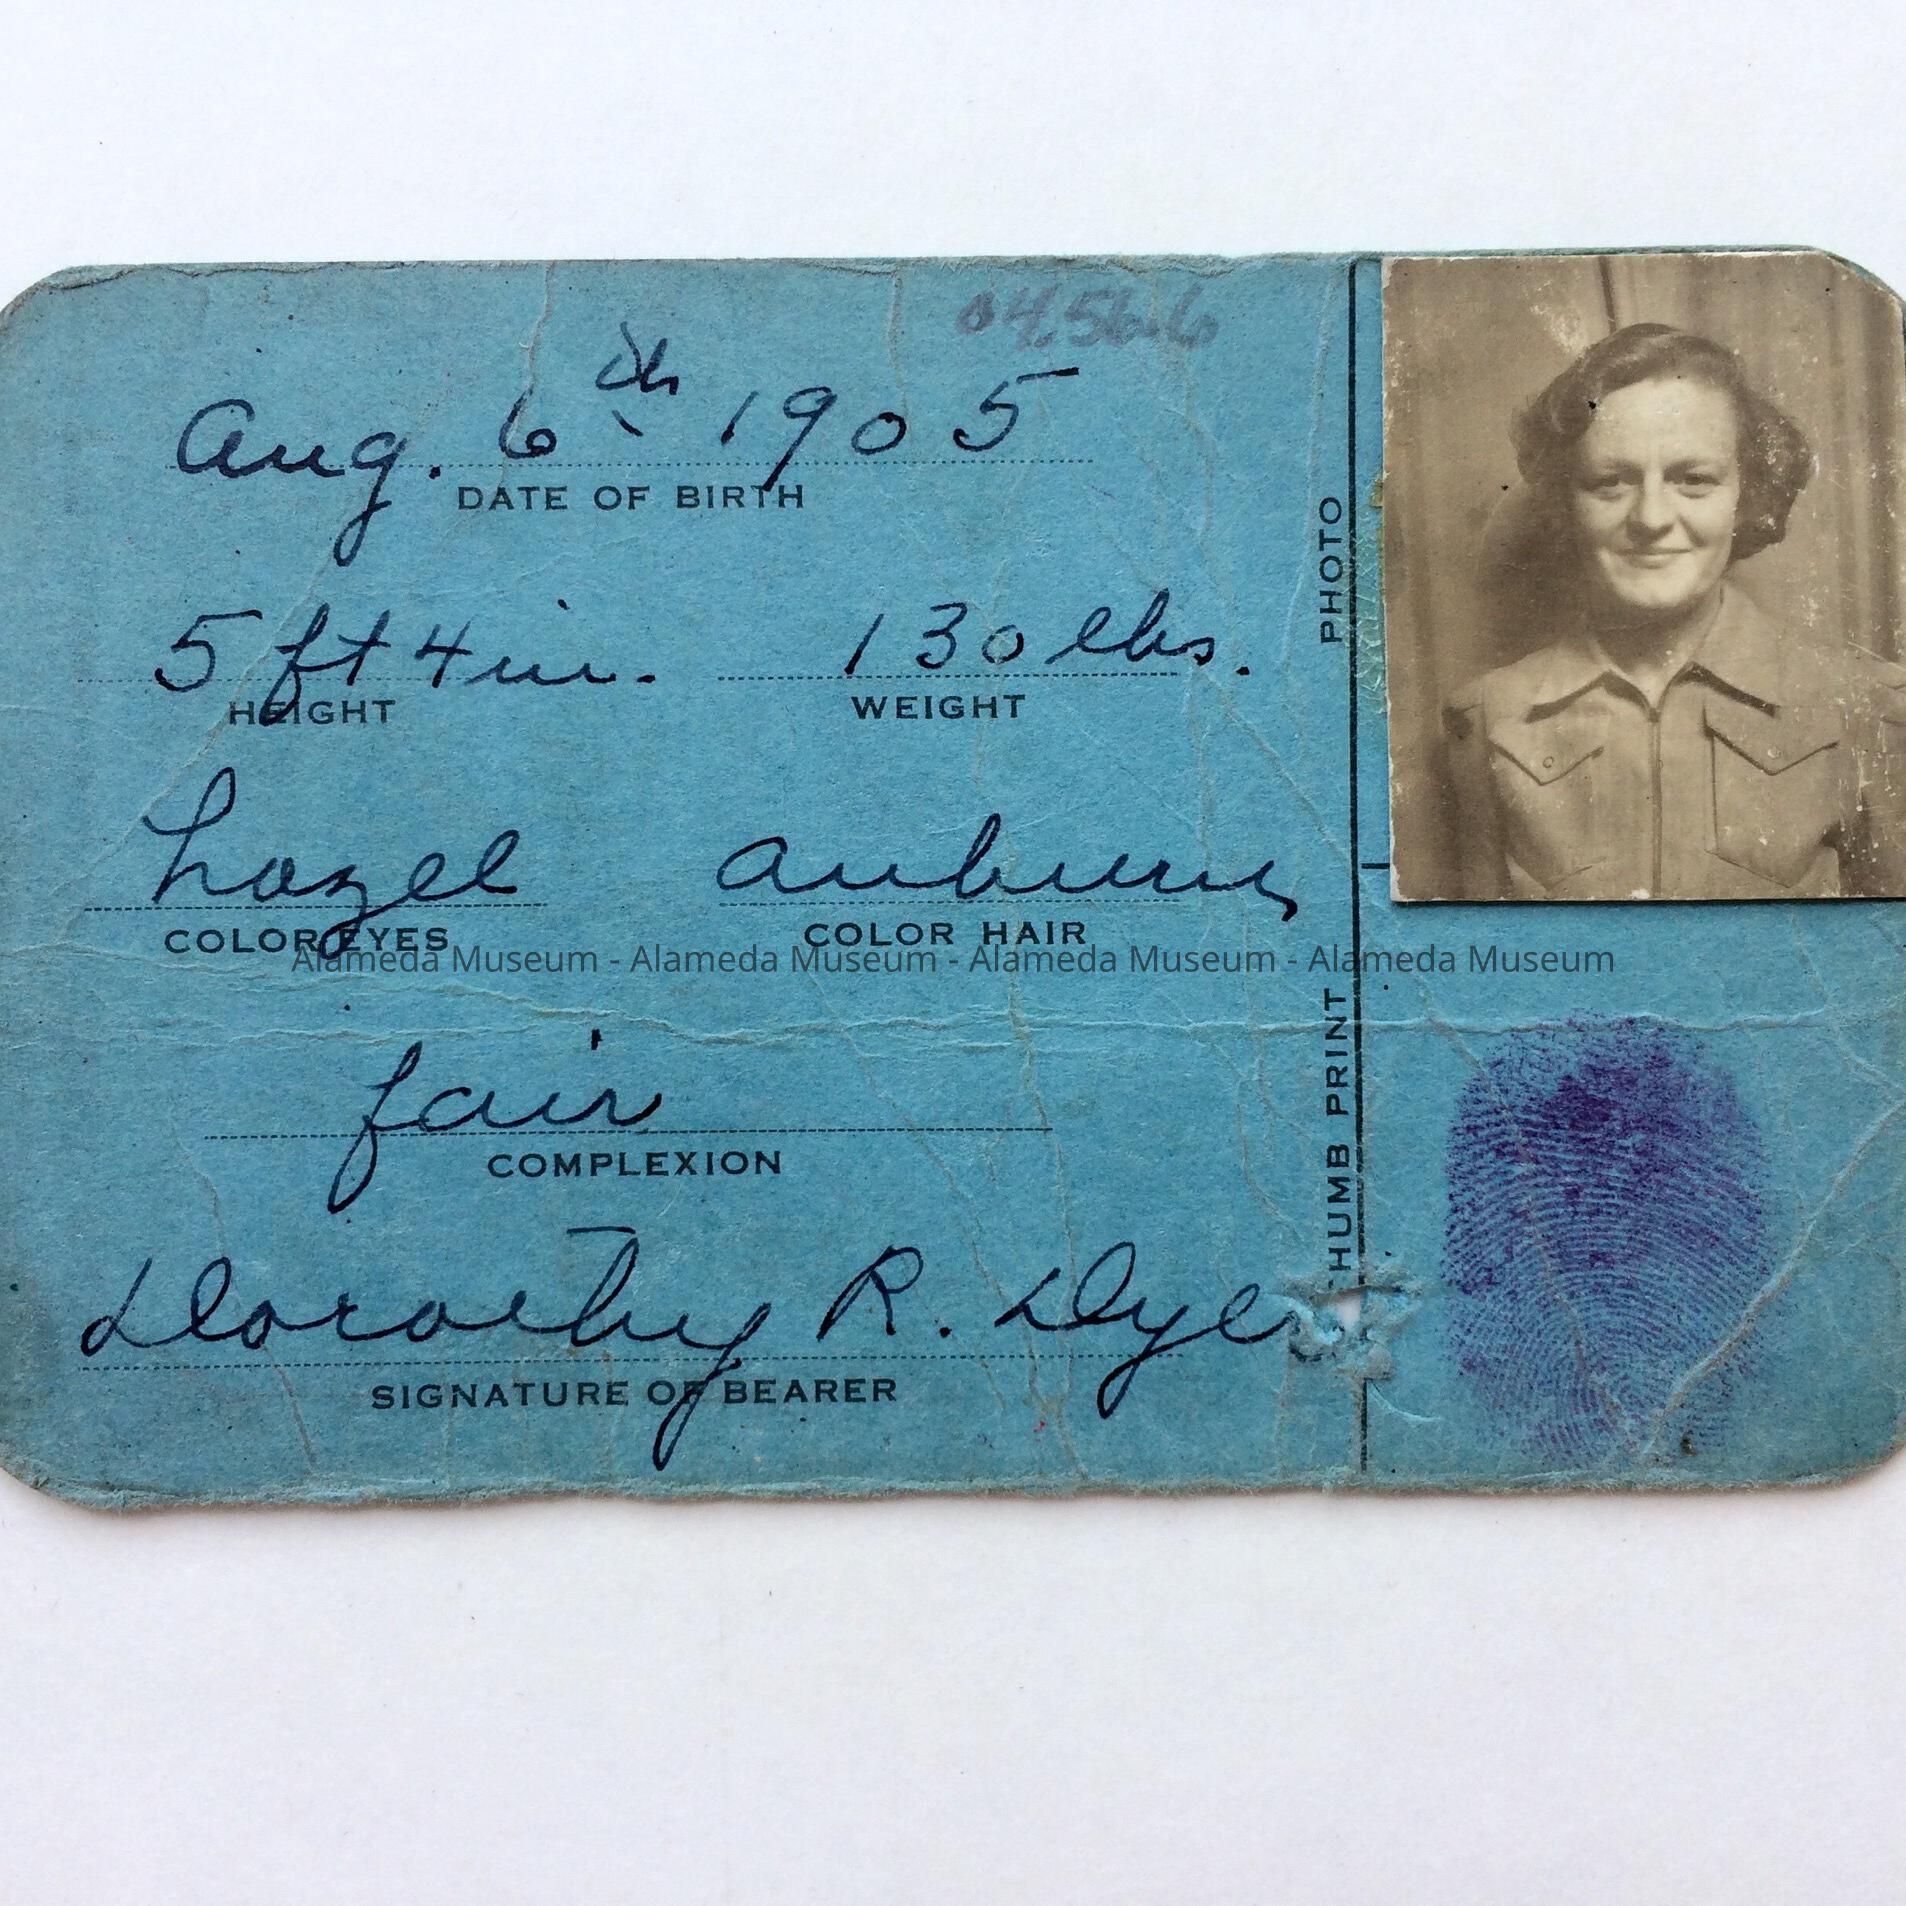 04.56.6
Aug. 6th 1905
DATE OF BIRTH
5 ft 4 in. 130 lbs.
HEIGHT WEIGHT
hazel auburn
COLOR EYES COLOR HAIR
Alameda Museum - Alameda Museum - Alameda Museum - Alameda Museum
fair
COMPLEXION
Dorothy R. Dyer
SIGNATURE OF BEARER
PHOTO
THUMB PRINT